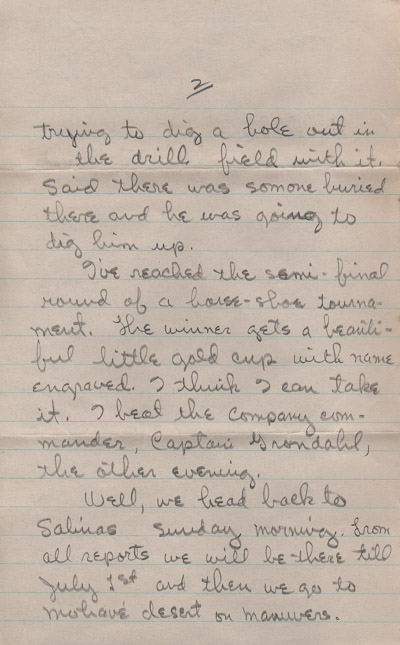 2
trying to dig a hole out in
the drill field with it.
Said there was somone buried
there and he was going to
dig him up.
I've reached the semi-final
round of a horse-shoe tourna-
ment. The winner gets a beauti-
ful little gold cup with name
engraved. I think I can take
it. I beat the company com-
mander, Captain Grondahl,
the other evening.
Well, we head back to
Salinas Sunday morning. From
all reports we will be there till
July 1st and then we go to
mohave desert on manuvers.